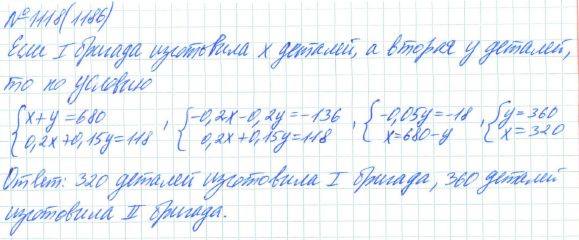 №1118(1186)
Если I бригада изготовила x деталей, а вторая y деталей,
то по условию
{x+y=680 , {-0,2x-0,2y=-136 , {-0,05y=-18 , {y=360
0,2x+0,15y=118 0,2x+0,15y=118 x=680-y x=320
Ответ: 320 деталей изготовила I бригада, 360 деталей
изготовила II бригада.